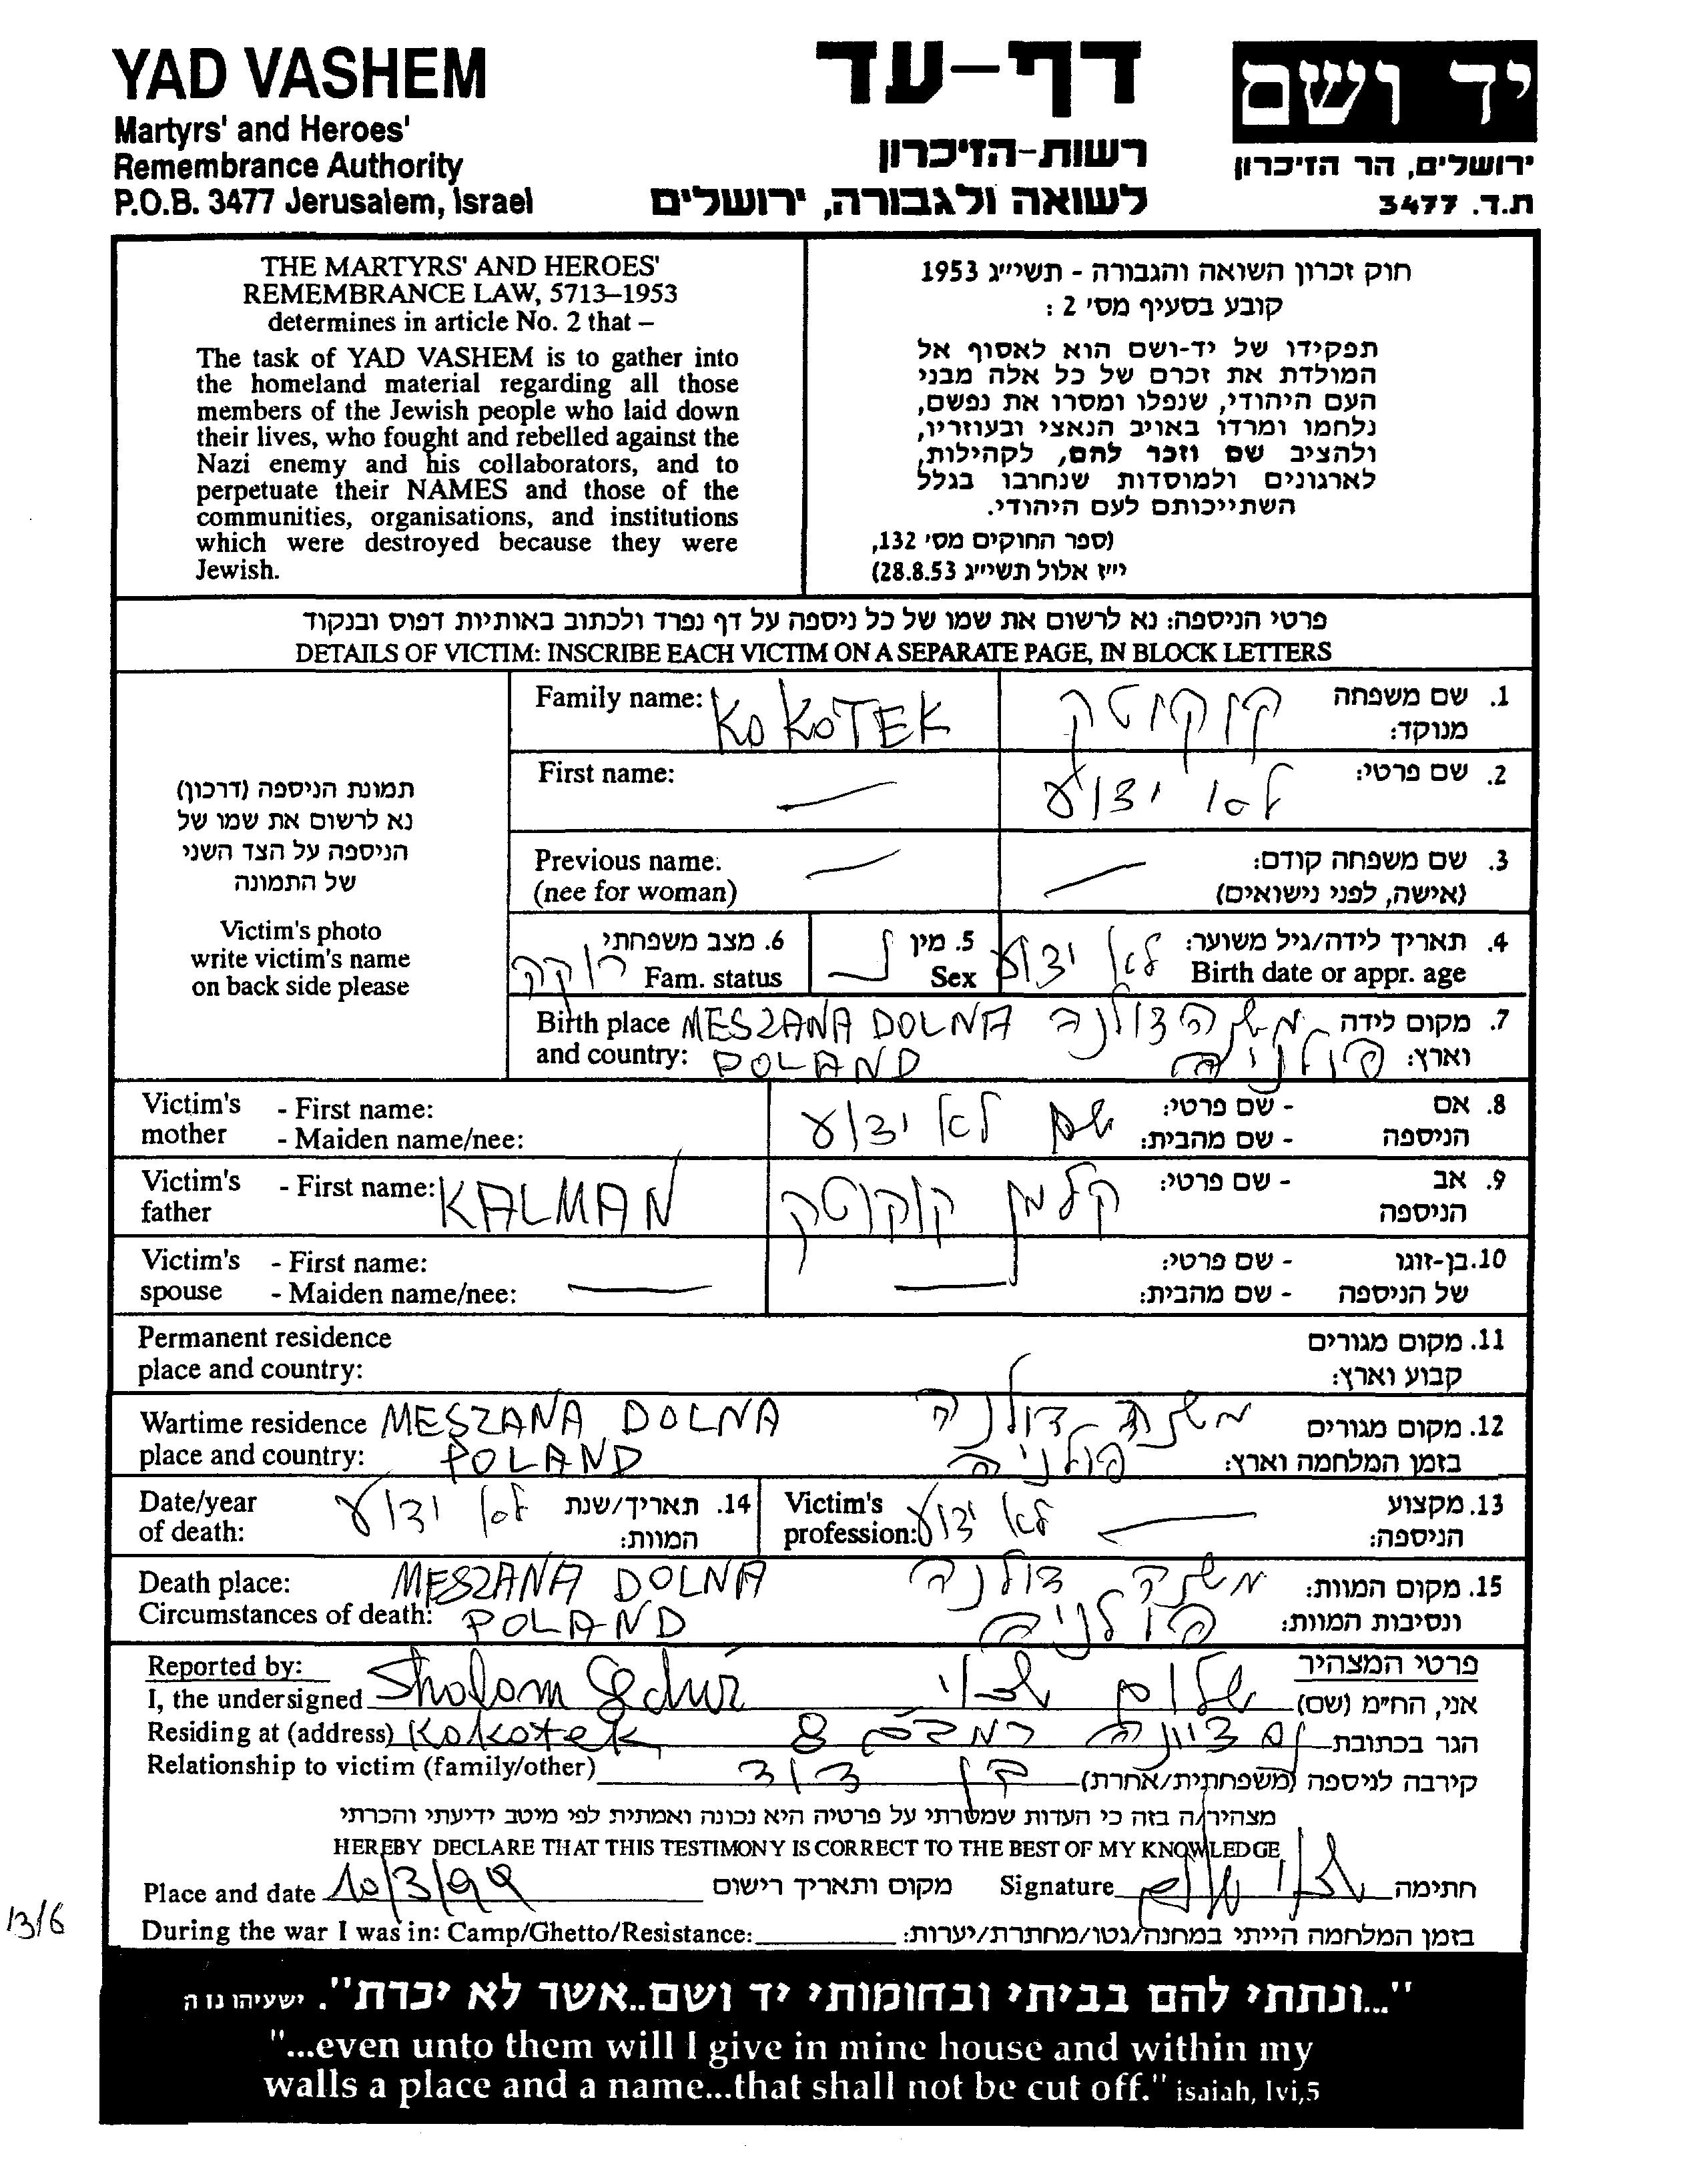 YAD VASHEM
Martyrs' and Heroes'
Remembrance Authority
P.O.B. 3477 Jerusalem, Israel
דף-עד
רשות-הזיכרון
לשואה ולגבורה, ירושלים
יד ושם
ירושלים, הר הזיכרון
ת.ד. 3477
THE MARTYRS' AND HEROES'
REMEMBRANCE LAW, 5713–1953
determines in article No. 2 that –
The task of YAD VASHEM is to gather into
the homeland material regarding all those
members of the Jewish people who laid down
their lives, who fought and rebelled against the
Nazi enemy and his collaborators, and to
perpetuate their NAMES and those of the
communities, organisations, and institutions
which were destroyed because they were
Jewish.
חוק זכרון השואה והגבורה - תשי״ג 1953
קובע בסעיף מס' 2 :
תפקידו של יד-ושם הוא לאסוף אל
המולדת את זכרם של כל אלה מבני
העם היהודי, שנפלו ומסרו את נפשם,
נלחמו ומרדו באויב הנאצי ובעוזריו,
ולהציב שם וזכר להם, לקהילות,
לארגונים ולמוסדות שנחרבו בגלל
השתייכותם לעם היהודי.
(ספר החוקים מס' 132,
י״ז אלול תשי״ג 28.8.53)
פרטי הניספה: נא לרשום את שמו של כל ניספה על דף נפרד ולכתוב באותיות דפוס ובנקוד
DETAILS OF VICTIM: INSCRIBE EACH VICTIM ON A SEPARATE PAGE, IN BLOCK LETTERS
תמונת הניספה (דרכון)
נא לרשום את שמו של
הניספה על הצד השני
של התמונה
Victim's photo
write victim's name
on back side please
Family name: KOKOTEK קוקוטק 1. שם משפחה
מנוקד:
First name: לא ידוע 2. שם פרטי:
Previous name: 3. שם משפחה קודם:
(nee for woman) (אישה, לפני נישואים)
6. מצב משפחתי 5. מין לא ידוע 4. תאריך לידה/גיל משוער:
רווקה Fam. status נ Sex Birth date or appr. age
Birth place MESZANA DOLNA משנה דולנה 7. מקום לידה
and country: POLAND פולניה וארץ:
Victim's - First name: שם לא ידוע - שם פרטי: 8. אם
mother - Maiden name/nee: - שם מהבית: הניספה
Victim's - First name: KALMAN קלמן קוקוטק - שם פרטי: 9. אב
father הניספה
Victim's - First name: - שם פרטי: 10. בן-זוגו
spouse - Maiden name/nee: - שם מהבית: של הניספה
Permanent residence 11. מקום מגורים
place and country: קבוע וארץ:
Wartime residence MESZANA DOLNA משנה דולנה 12. מקום מגורים
place and country: POLAND פולניה בזמן המלחמה וארץ:
Date/year לא ידוע 14. תאריך/שנת Victim's לא ידוע 13. מקצוע
of death: המוות: profession: הניספה:
Death place: MESZANA DOLNA משנה דולנה 15. מקום המוות:
Circumstances of death: POLAND פולניה ונסיבות המוות:
Reported by: פרטי המצהיר
I, the undersigned Sholom שלום אני, הח״מ (שם)
Residing at (address) Kokotek 8 הגר בכתובת
Relationship to victim (family/other) בן דוד קירבה לניספה (משפחתית/אחרת)-
מצהיר/ה בזה כי העדות שמסרתי על פרטיה היא נכונה ואמתית לפי מיטב ידיעתי והכרתי
HEREBY DECLARE THAT THIS TESTIMONY IS CORRECT TO THE BEST OF MY KNOWLEDGE
Place and date 10/3/99 מקום ותאריך רישום Signature חתימה
13/6
During the war I was in: Camp/Ghetto/Resistance: בזמן המלחמה הייתי במחנה/גטו/מחתרת/יערות:
"...ונתתי להם בביתי ובחומותי יד ושם..אשר לא יכרת". ישעיהו נו ה
"...even unto them will I give in mine house and within my
walls a place and a name...that shall not be cut off." isaiah, lvi,5